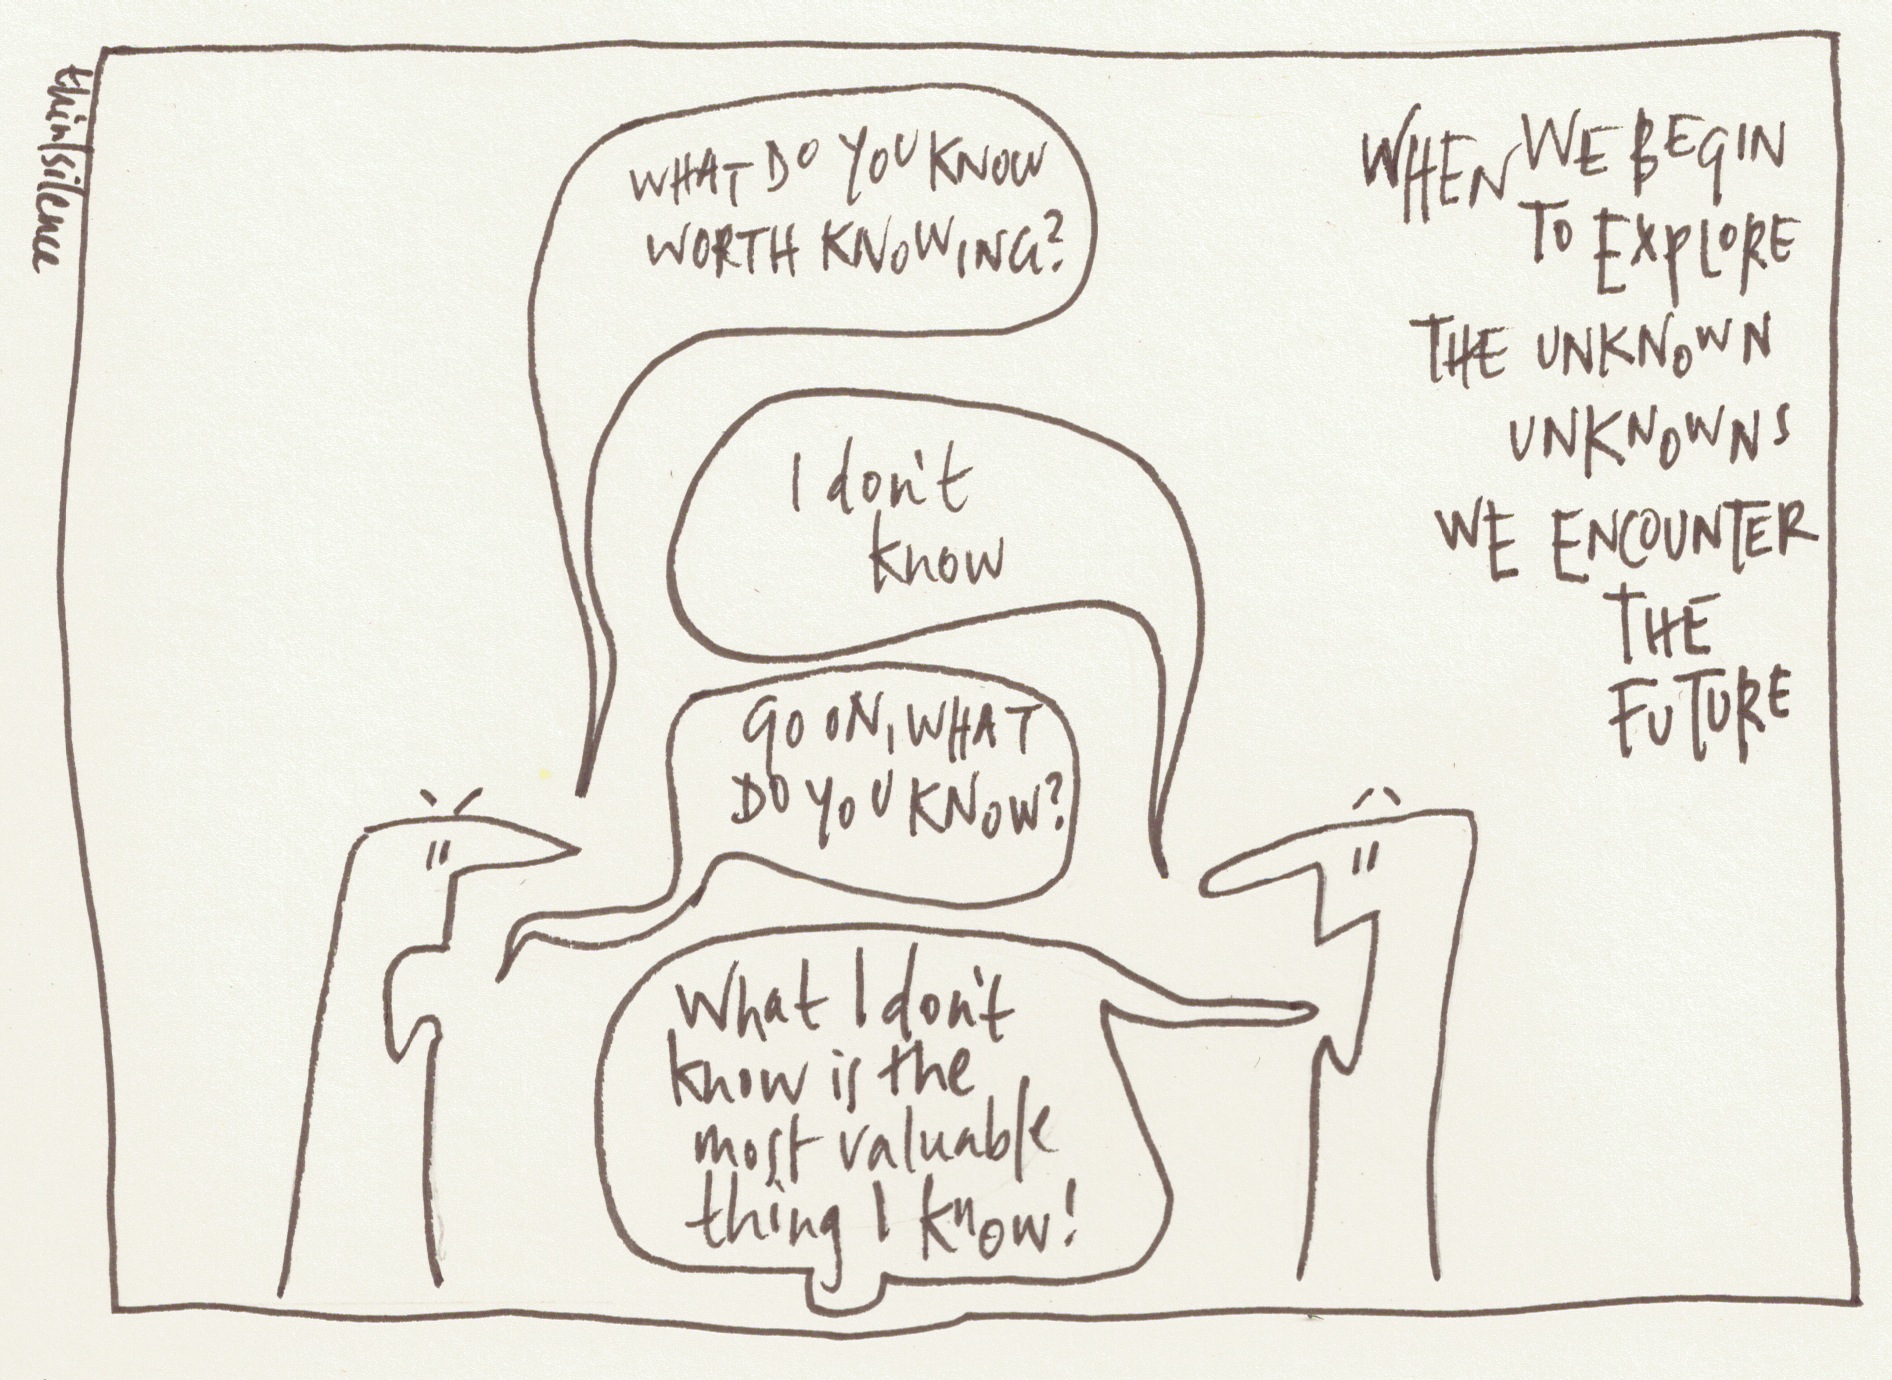 thinksilence
WHAT DO YOU KNOW
WORTH KNOWING?
I don't
know
GO ON, WHAT
DO YOU KNOW?
What I don't
know is the
most valuable
thing I know!
WHEN WE BEGIN
TO EXPLORE
THE UNKNOWN
UNKNOWNS
WE ENCOUNTER
THE
FUTURE